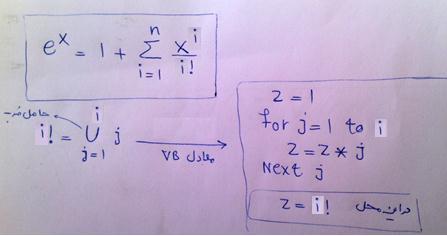 e^x = 1 + Σ_{i=1}^{n} x^i / i!
حاصلضرب
i! = ∪_{j=1}^{i} j
معادل VB
Z = 1
for j=1 to i
Z = Z * j
Next j
Z = i! در این محل